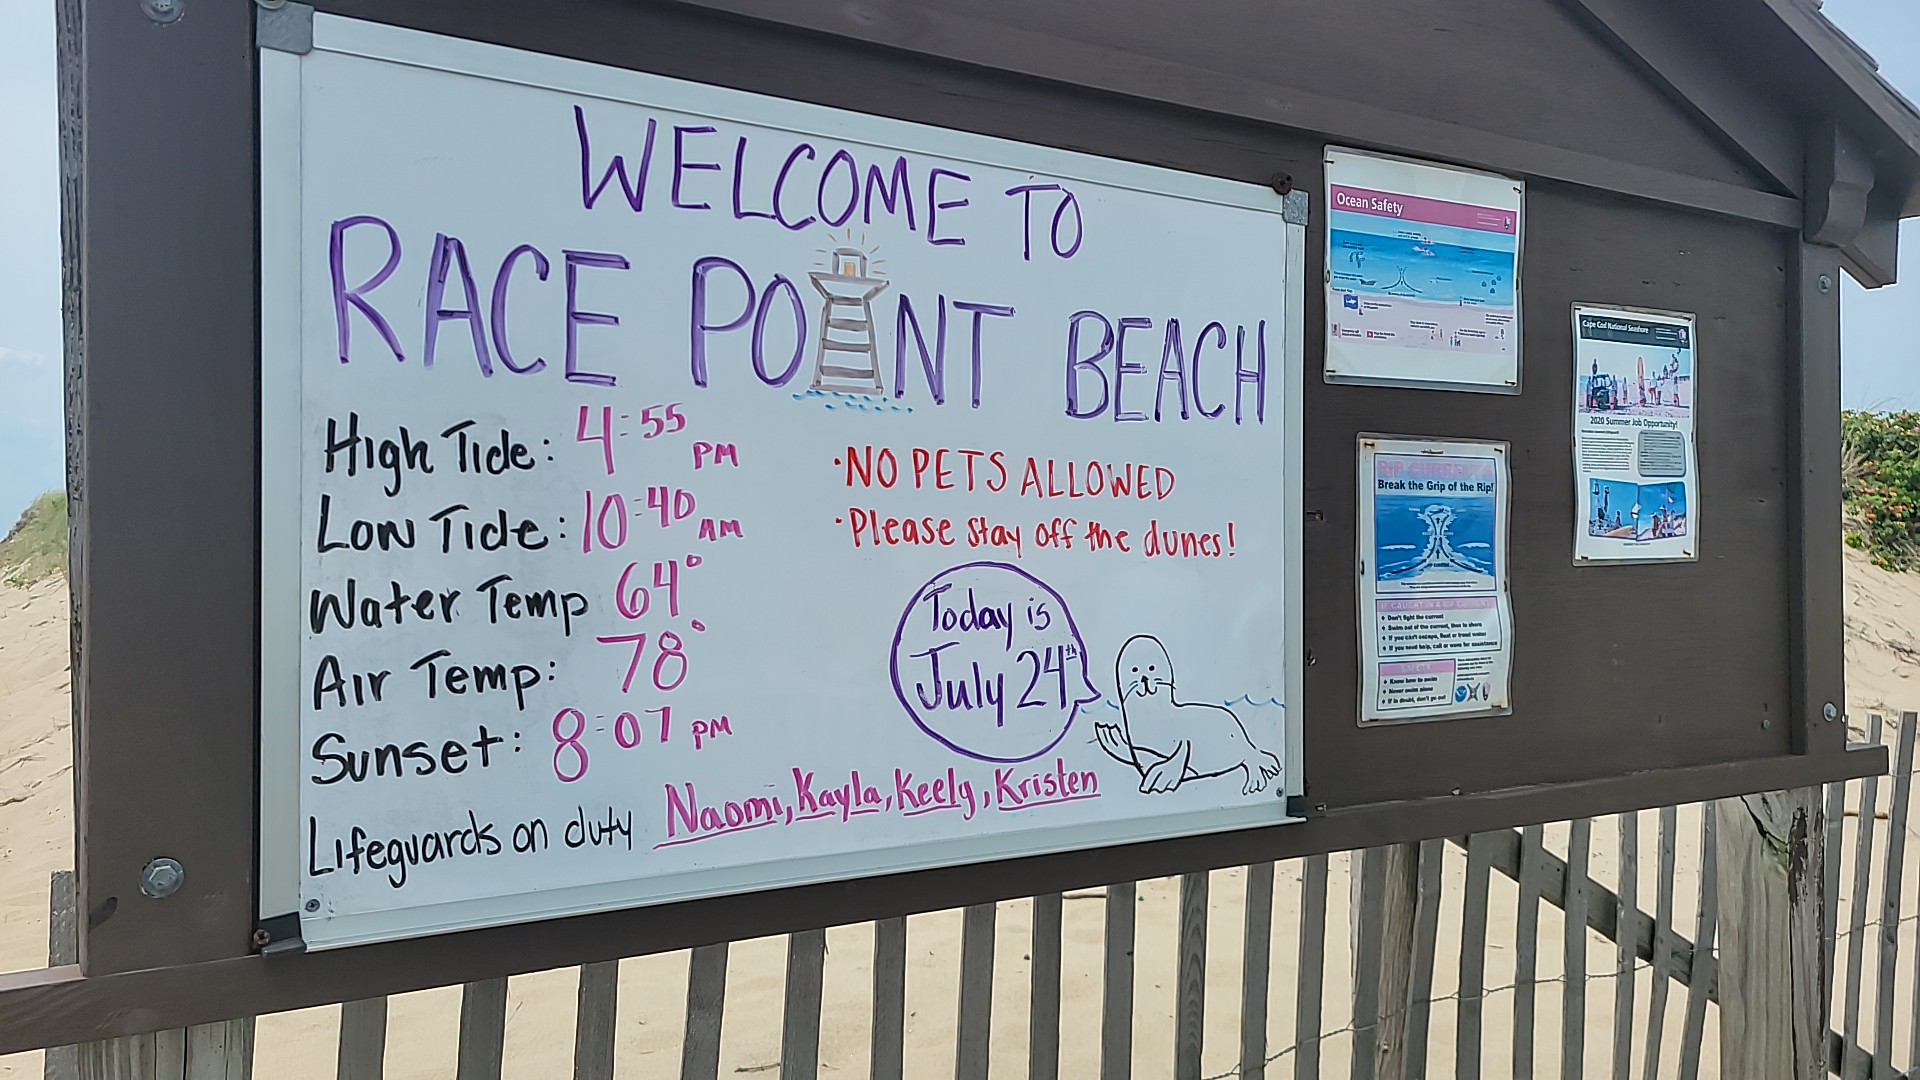 WELCOME TO
RACE POINT BEACH
High Tide: 4:55 PM
Low Tide: 10:40 AM
Water Temp 64°
Air Temp: 78°
Sunset: 8:07 PM
Lifeguards on duty Naomi, Kayla, Keely, Kristen
·NO PETS ALLOWED
·Please stay off the dunes!
Today is
July 24th
Ocean Safety
RIP CURRENTS
Break the Grip of the Rip!
IF CAUGHT IN A RIP CURRENT
Don't fight the current
Swim out of the current, then to shore
If you can't escape, float or tread water
If you need help, call or wave for assistance
SAFETY
Know how to swim
Never swim alone
If in doubt, don't go out
Cape Cod National Seashore
2020 Summer Job Opportunity!